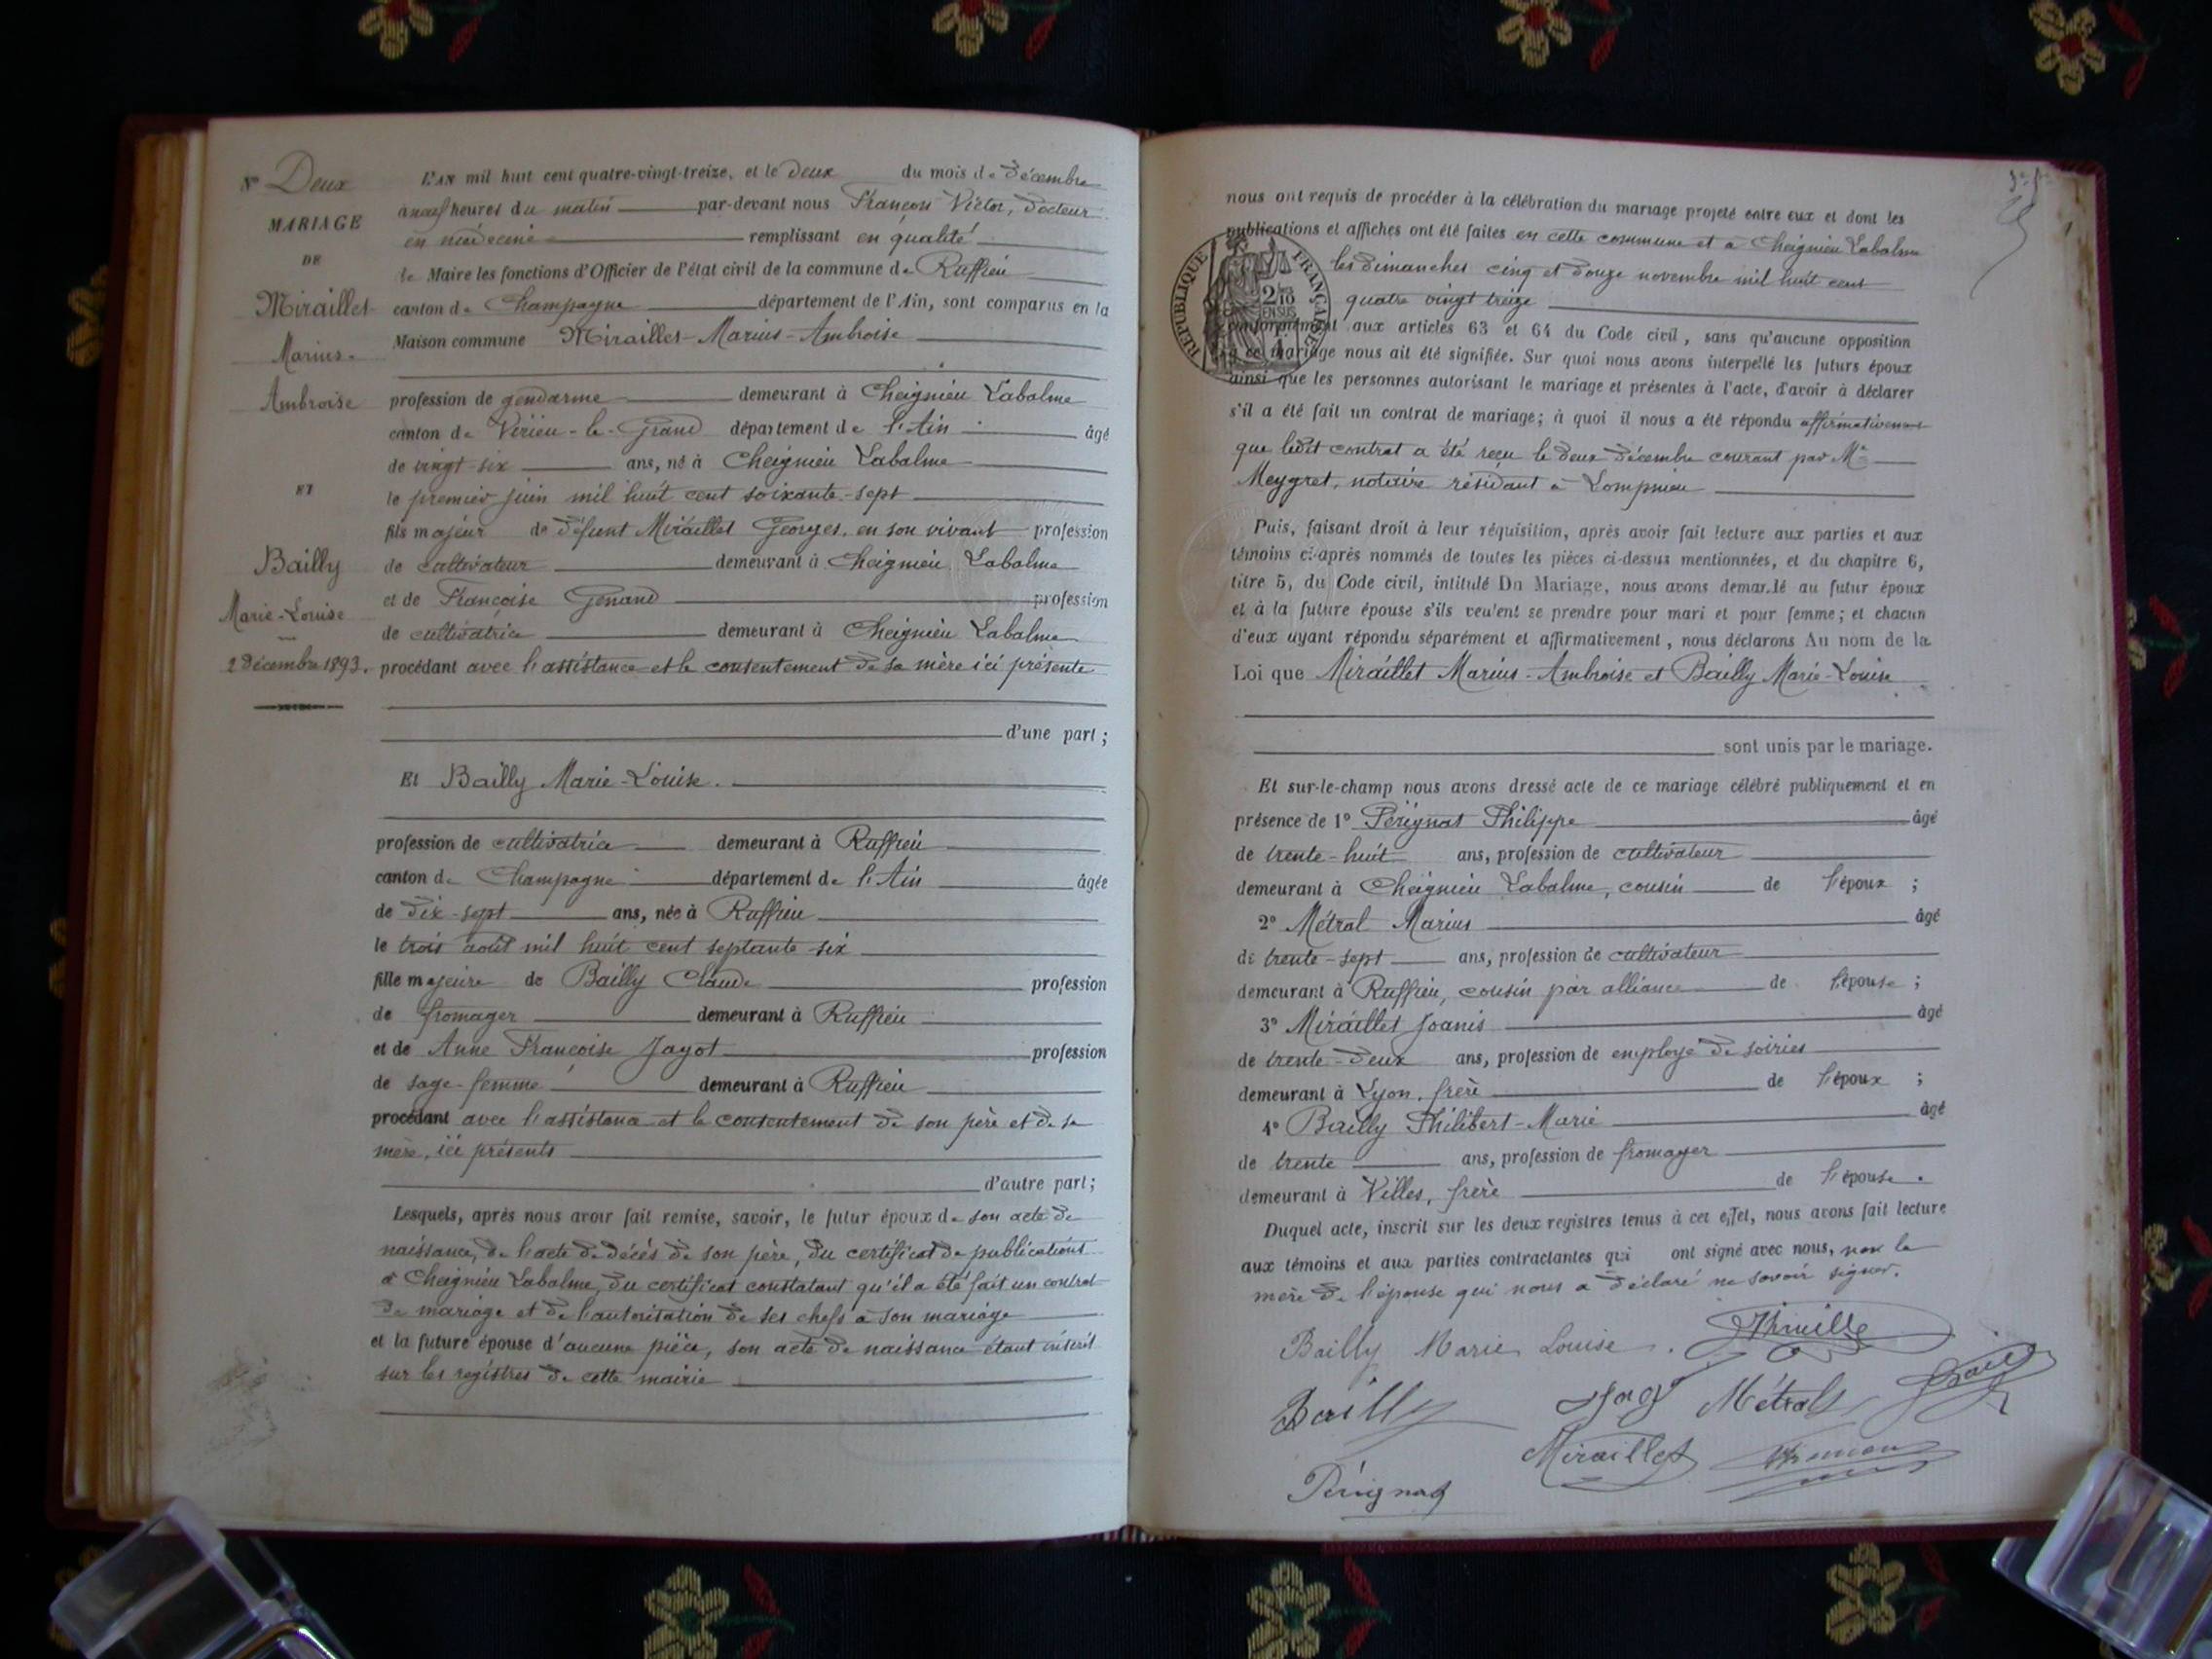 No Deux
MARIAGE
DE
Miraillet
Marius-
Ambroise
ET
Bailly
Marie-Louise
2 Décembre 1893.
L'AN mil huit cent quatre-vingt-treize, et le deux du mois de Décembre
à neuf heures du matin par-devant nous François Victor, Docteur
en médecine remplissant en qualité
de Maire les fonctions d'Officier de l'état civil de la commune de Ruffieu
canton de Champagne département de l'Ain, sont comparus en la
Maison commune Miraillet Marius-Ambroise
profession de gendarme demeurant à Cheignieu Labalme
canton de Virieu-le-Grand département de l'Ain âgé
de vingt-six ans, né à Cheignieu Labalme
le premier juin mil huit cent soixante-sept
fils majeur de défunt Miraillet Georges, en son vivant profession
de cultivateur demeurant à Cheignieu Labalme
et de Françoise Genand profession
de cultivatrice demeurant à Cheignieu Labalme
procédant avec l'assistance et le consentement de sa mère ici présente
d'une part ;
Et Bailly Marie-Louise.
profession de cultivatrice demeurant à Ruffieu
canton de Champagne département de l'Ain âgée
de dix-sept ans, née à Ruffieu
le trois août mil huit cent septante-six
fille majeure de Bailly Claude profession
de fromager demeurant à Ruffieu
et de Anne Françoise Jagot profession
de sage-femme demeurant à Ruffieu
procédant avec l'assistance et le consentement de son père et de sa
mère, ici présents
d'autre part;
Lesquels, après nous avoir fait remise, savoir, le futur époux de son acte de
naissance, de l'acte de décès de son père, du certificat de publications
à Cheignieu Labalme, du certificat constatant qu'il a été fait un contrat
de mariage et de l'autorisation de ses chefs à son mariage
et la future épouse d'aucune pièce, son acte de naissance étant inscrit
sur les registres de cette mairie
nous ont requis de procéder à la célébration du mariage projeté entre eux et dont les
publications et affiches ont été faites en cette commune et à Cheignieu Labalme
les dimanches cinq et douze novembre mil huit cent
quatre vingt treize
RÉPUBLIQUE FRANÇAISE
2/10 EN SUS
conformément aux articles 63 et 64 du Code civil, sans qu'aucune opposition
à ce mariage nous ait été signifiée. Sur quoi nous avons interpellé les futurs époux
ainsi que les personnes autorisant le mariage et présentes à l'acte, d'avoir à déclarer
s'il a été fait un contrat de mariage; à quoi il nous a été répondu affirmativement
que ledit contrat a été reçu le deux Décembre courant par Me
Meygret, notaire résidant à Lompnieu
Puis, faisant droit à leur réquisition, après avoir fait lecture aux parties et aux
témoins ci-après nommés de toutes les pièces ci-dessus mentionnées, et du chapitre 6,
titre 5, du Code civil, intitulé Du Mariage, nous avons demandé au futur époux
et à la future épouse s'ils veulent se prendre pour mari et pour femme; et chacun
d'eux ayant répondu séparément et affirmativement, nous déclarons Au nom de la
Loi que Miraillet Marius-Ambroise et Bailly Marie-Louise
sont unis par le mariage.
Et sur-le-champ nous avons dressé acte de ce mariage célébré publiquement et en
présence de 1° Pérignat Philippe âgé
de trente-huit ans, profession de cultivateur
demeurant à Cheignieu Labalme, cousin de l'époux ;
2° Métral Marius âgé
de trente-sept ans, profession de cultivateur
demeurant à Ruffieu, cousin par alliance de l'épouse ;
3° Miraillet Joanis âgé
de trente-deux ans, profession de employé de soiries
demeurant à Lyon, frère de l'époux ;
4° Bailly Philibert-Marie âgé
de trente ans, profession de fromager
demeurant à Villes, frère de l'épouse.
Duquel acte, inscrit sur les deux registres tenus à cet effet, nous avons fait lecture
aux témoins et aux parties contractantes qui ont signé avec nous, non la
mère de l'épouse qui nous a déclaré ne savoir signer.
Bailly Marie Louise.
Bailly Métral
Miraillet
Pérignat